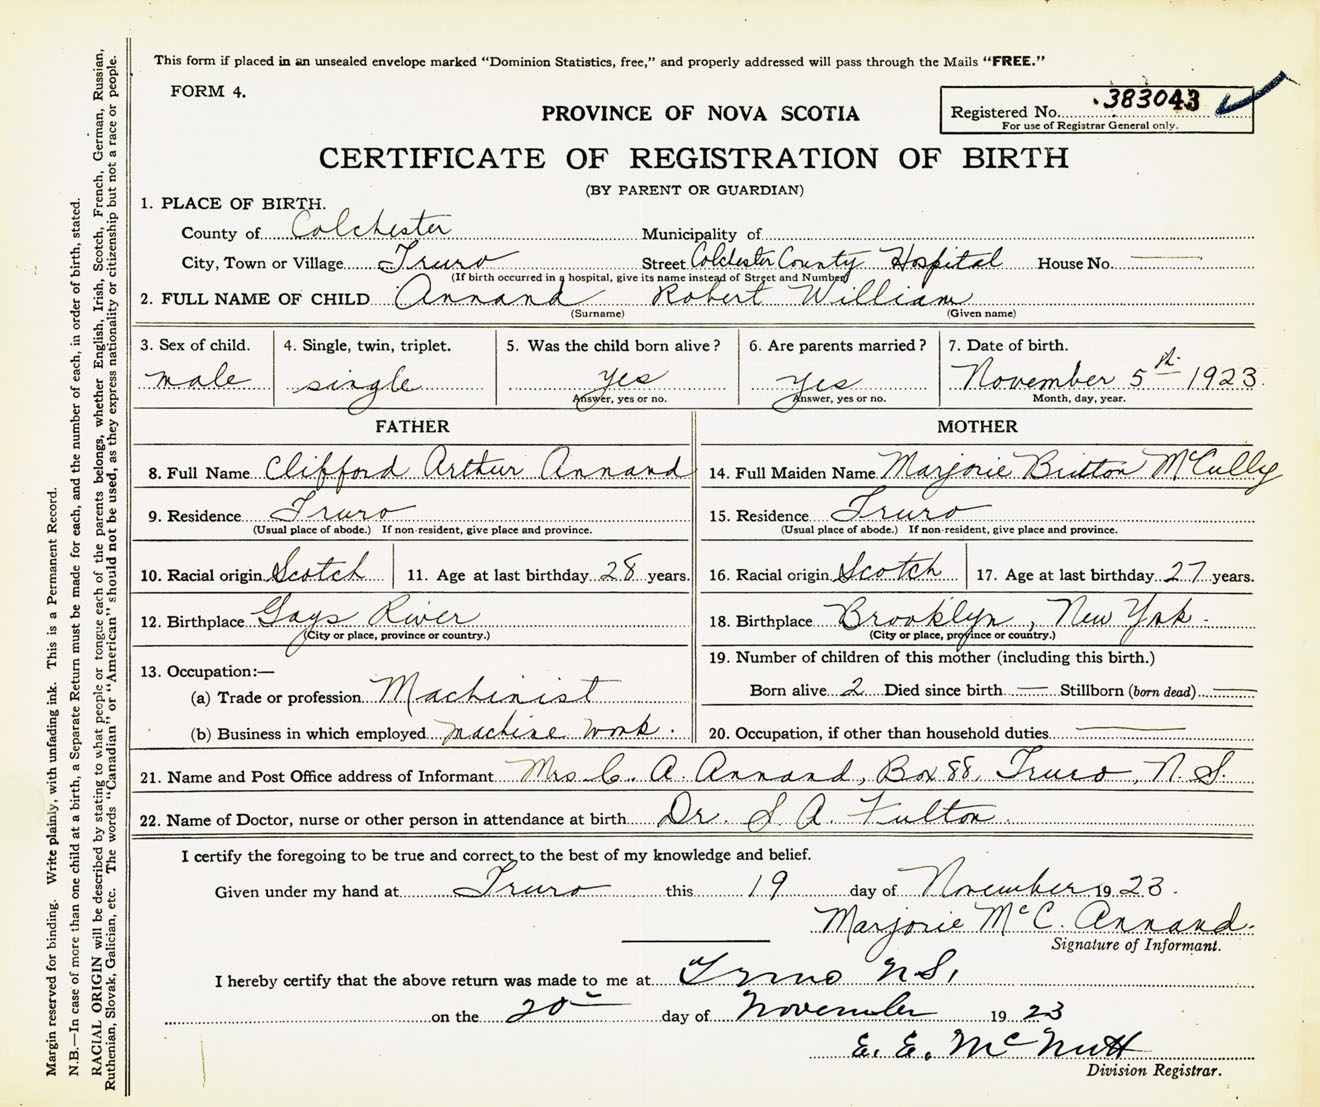 This form if placed in an unsealed envelope marked "Dominion Statistics, free," and properly addressed will pass through the Mails "FREE."
FORM 4.
PROVINCE OF NOVA SCOTIA
Registered No. 383043
For use of Registrar General only.
CERTIFICATE OF REGISTRATION OF BIRTH
(BY PARENT OR GUARDIAN)
1. PLACE OF BIRTH.
County of Colchester Municipality of
City, Town or Village Truro Street Colchester County Hospital House No. —
(If birth occurred in a hospital, give its name instead of Street and Number)
2. FULL NAME OF CHILD Annand Robert William
(Surname) (Given name)
3. Sex of child. 4. Single, twin, triplet. 5. Was the child born alive? 6. Are parents married? 7. Date of birth.
male single Yes Yes November 5th 1923.
Answer, yes or no. Answer, yes or no. Month, day, year.
FATHER MOTHER
8. Full Name Clifford Arthur Annand 14. Full Maiden Name Marjorie Britton McCully
9. Residence Truro 15. Residence Truro
(Usual place of abode.) If non-resident, give place and province. (Usual place of abode.) If non-resident, give place and province.
10. Racial origin Scotch 11. Age at last birthday 28 years. 16. Racial origin Scotch 17. Age at last birthday 27 years.
12. Birthplace Gays River 18. Birthplace Brooklyn, New York.
(City or place, province or country.) (City or place, province or country.)
13. Occupation:— 19. Number of children of this mother (including this birth.)
(a) Trade or profession Machinist Born alive 2 Died since birth — Stillborn (born dead) —
(b) Business in which employed machine work. 20. Occupation, if other than household duties —
21. Name and Post Office address of Informant Mrs. C. A. Annand, Box 88, Truro, N. S.
22. Name of Doctor, nurse or other person in attendance at birth Dr. S A. Fulton.
I certify the foregoing to be true and correct to the best of my knowledge and belief.
Given under my hand at Truro this 19 day of November 1923.
Marjorie McC. Annand.
Signature of Informant.
I hereby certify that the above return was made to me at Truro N.S.
on the 20th day of November 1923
E. E. McNutt
Division Registrar.
Margin reserved for binding. Write plainly, with unfading ink. This is a Permanent Record.
N.B.—In case of more than one child at a birth, a Separate Return must be made for each, and the number of each, in order of birth, stated.
RACIAL ORIGIN will be described by stating to what people or tongue each of the parents belongs, whether English, Irish, Scotch, French, German, Russian,
Ruthenian, Slovak, Galician, etc. The words "Canadian" or "American" should not be used, as they express nationality or citizenship but not a race or people.